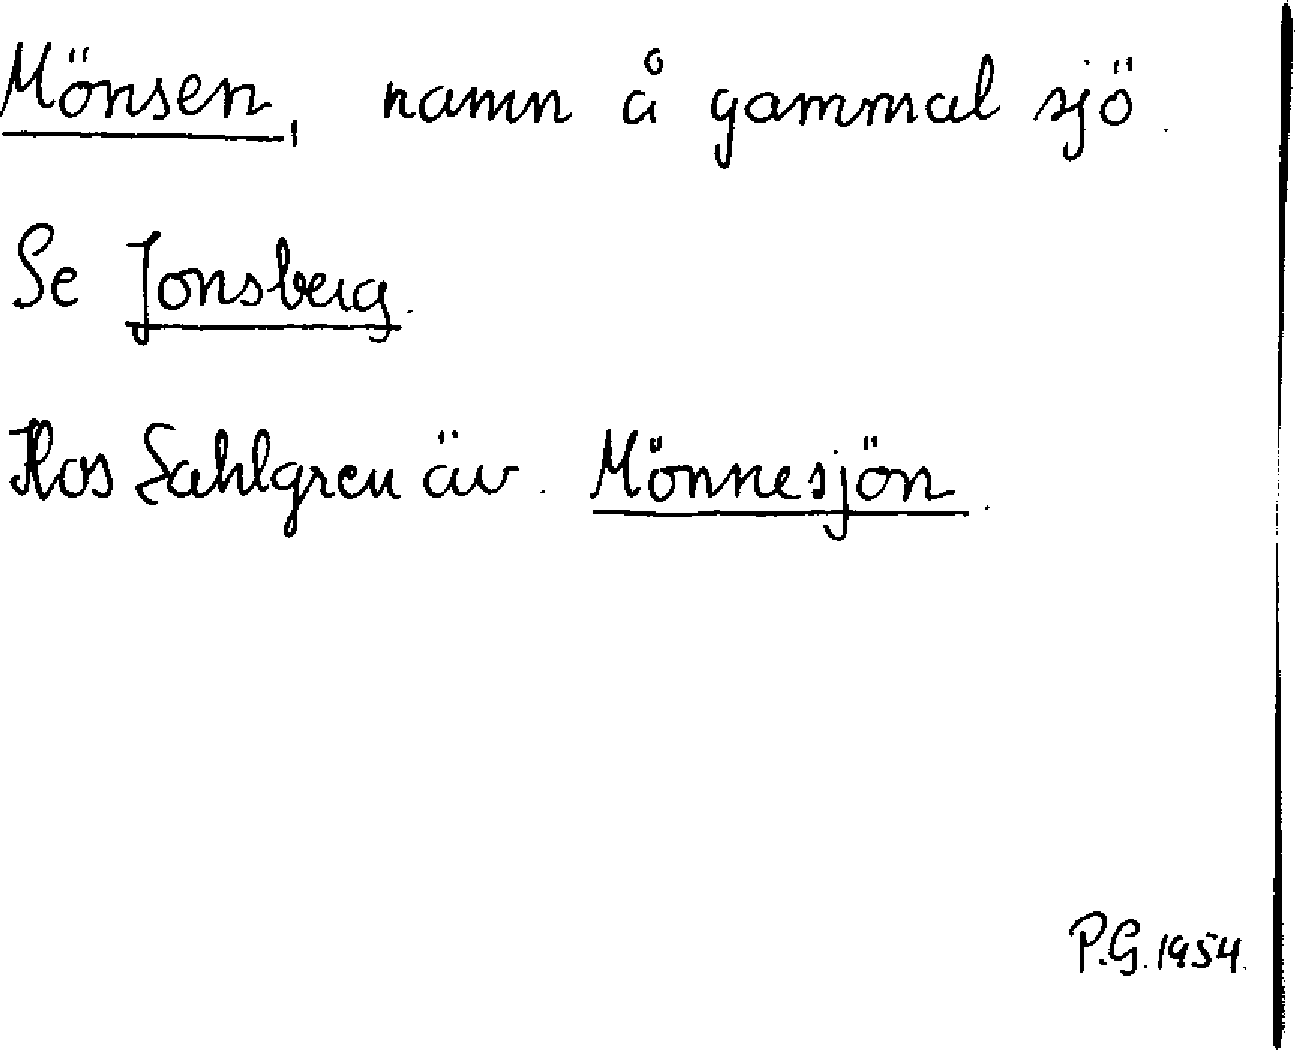 Mönsen, namn å gammal sjö.
Se Jonsberg.
Hos Sahlgren äv. Mönnesjön.
P.G. 1954.